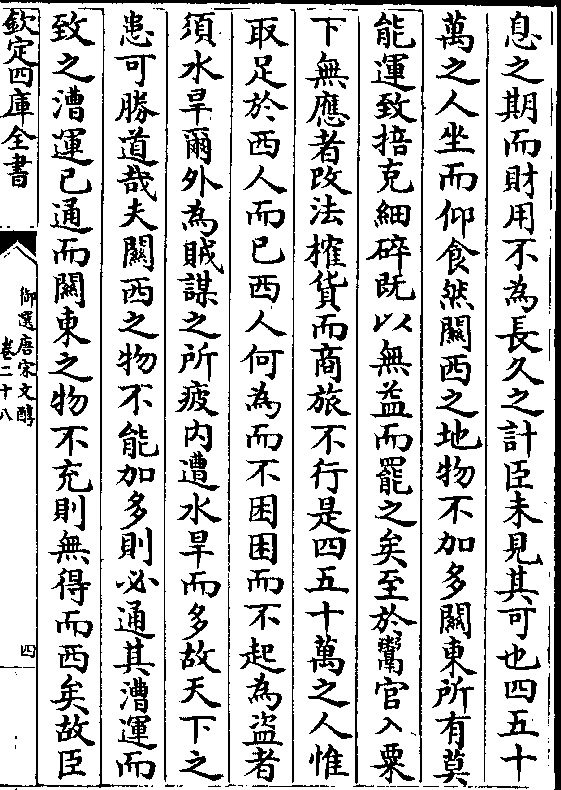 息之期而財用不為長久之計臣未見其可也四五十
萬之人坐而仰食然關西之地物不加多關東所有莫
能運致掊克細碎既以無益而罷之矣至於鬻官入粟
下無應者改法榷貨而商旅不行是四五十萬之人惟
取足於西人而已西人何為而不困困而不起為盜者
須水旱爾外為賊謀之所疲内遭水旱而多故天下之
患可勝道哉夫關西之物不能加多則必通其漕運而
致之漕運已通而關東之物不充則無得而西矣故臣
欽定四庫全書
御選唐宋文醇
卷二十八
四